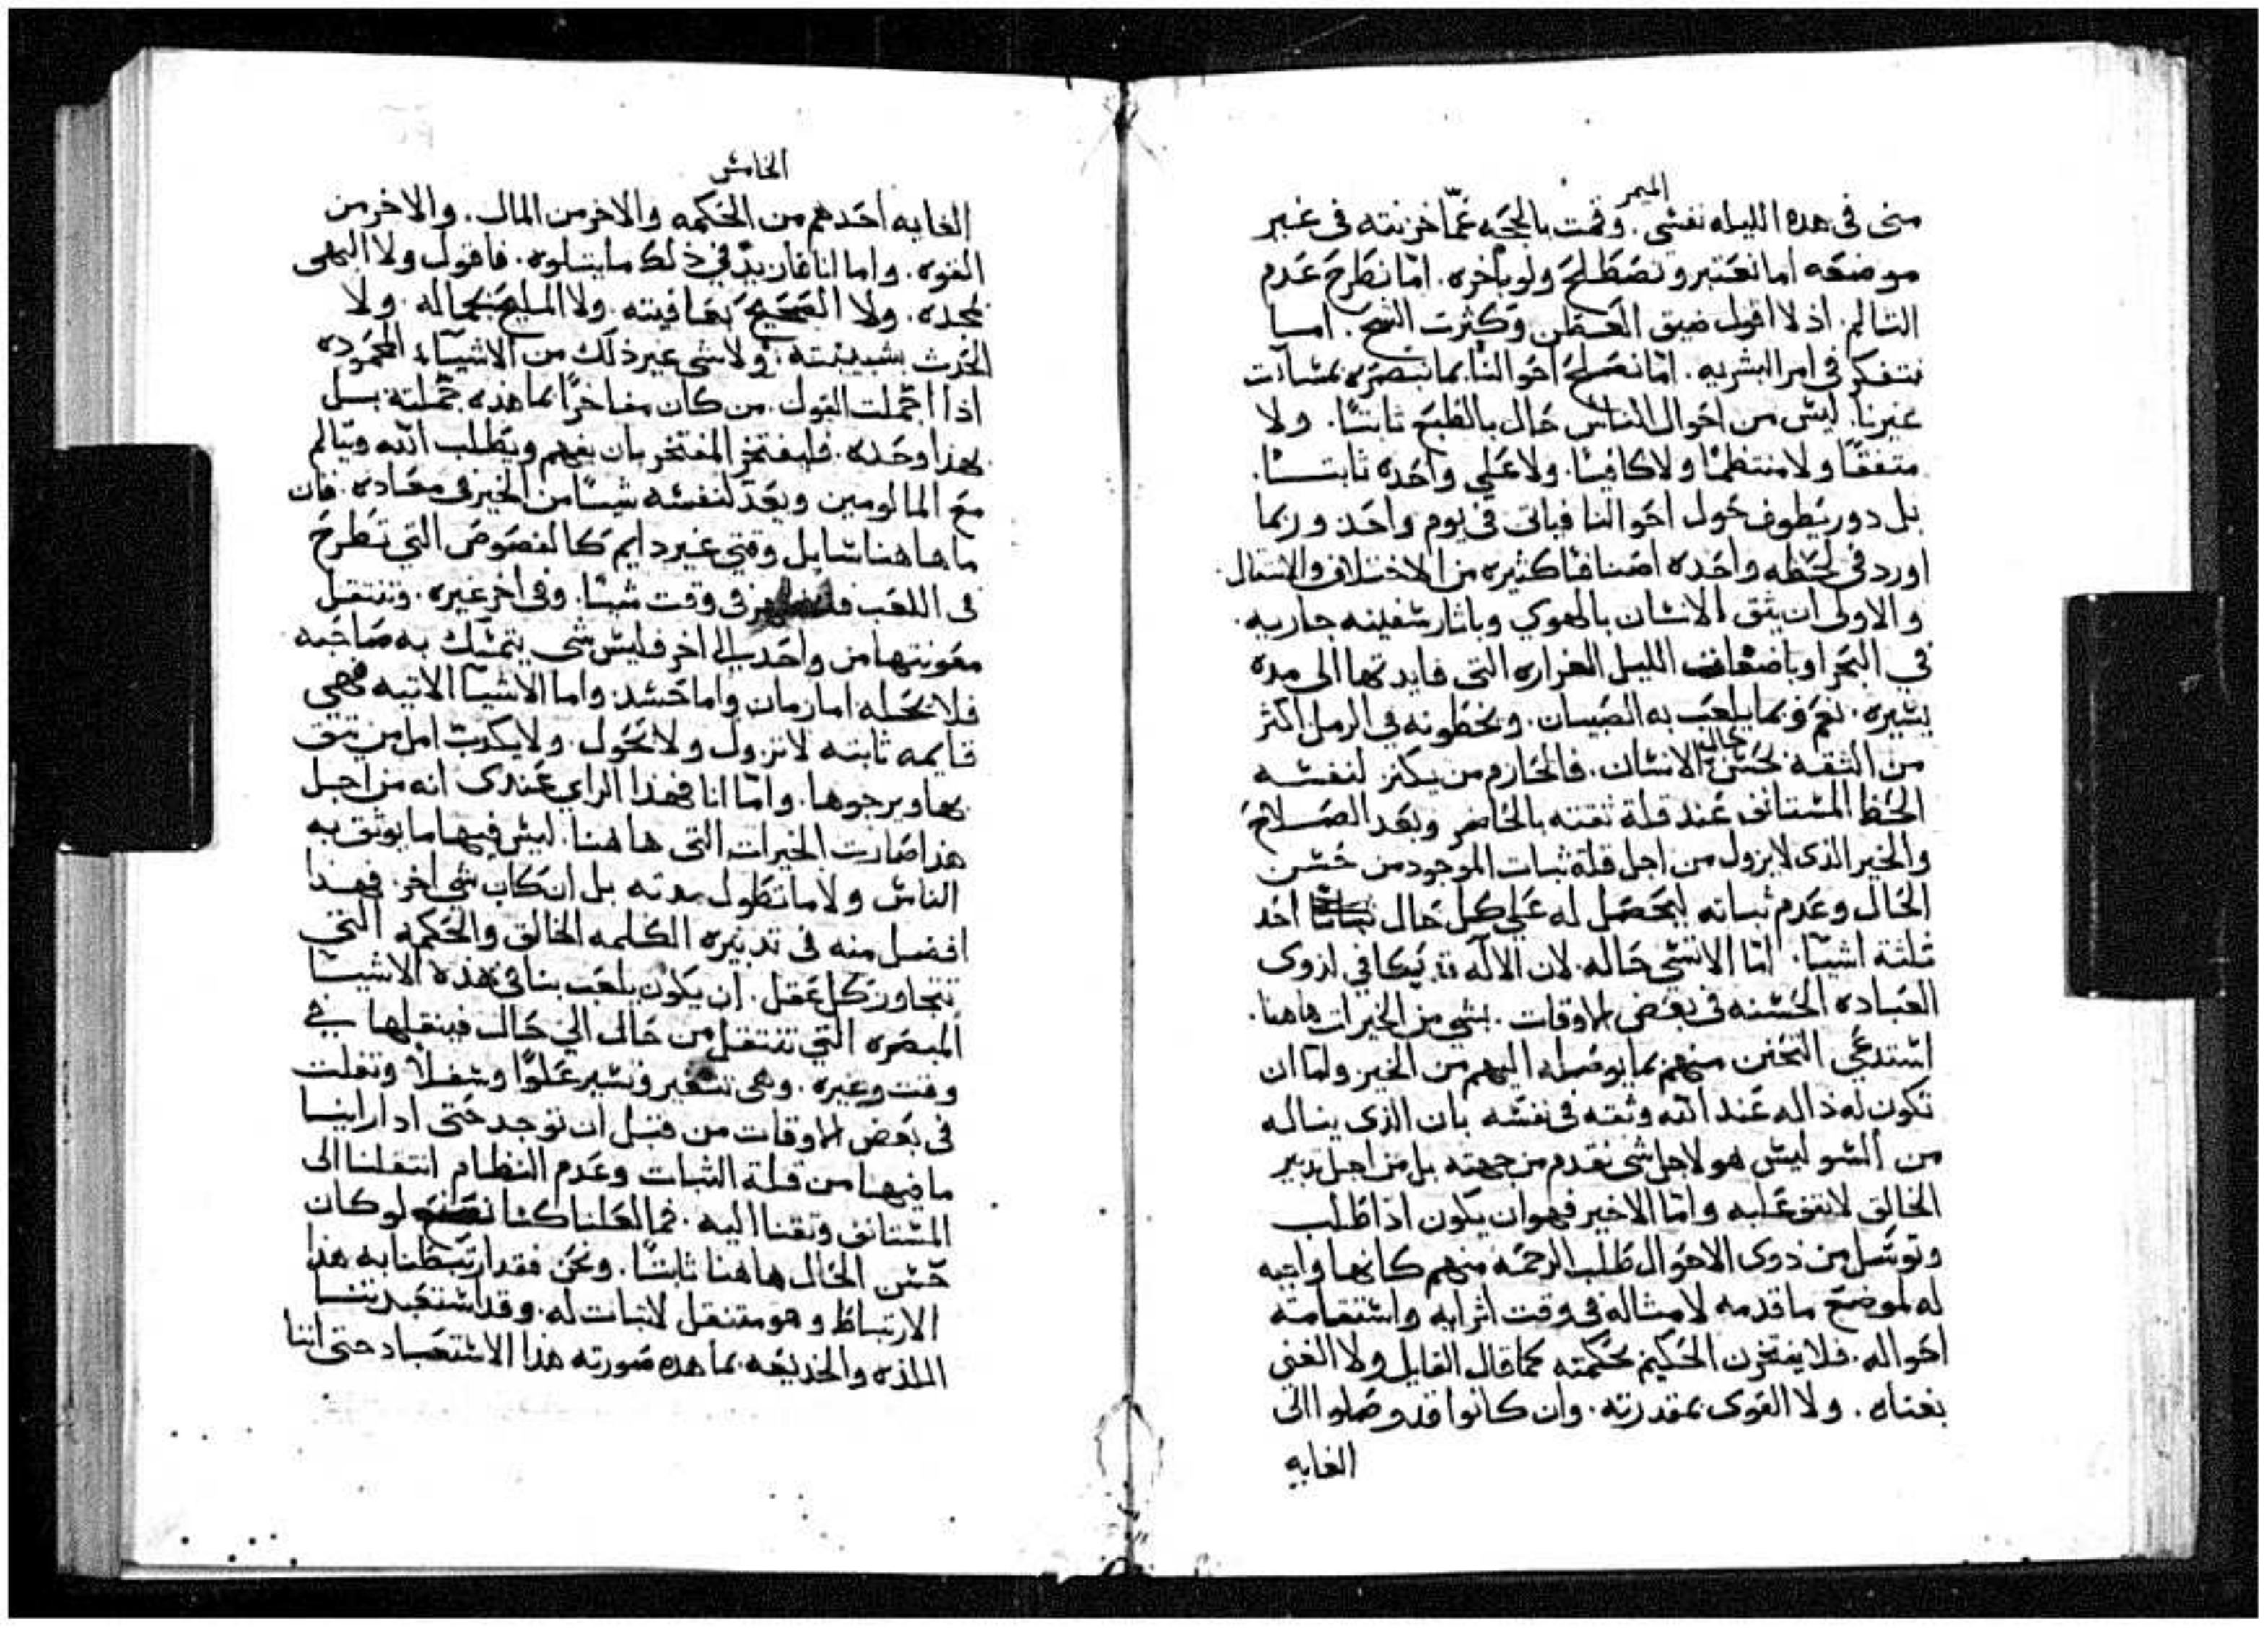 الميمر
منى فى هده الليله نفسى. وقمت بالحجه عمّا خزنته فى غير
موضعه اما نعتبر ونصطلح ولو بأخره. امّا نطرح عدم
التالم. اذ لا اقول ضيق العطن وكثرت الشح. امسا
نتفكر فى امر البشريه. امّا نصلح احوالنا بما نبصره بمسآت
غيرنا. ليس من احوال الناس حال بالطبع ثابتًا. ولا
متفقًا ولا منتظمًا ولا كافيًا. ولا على واحده ثابتــًا.
بل دور يطوف حول احوالنا فياتى فى يوم واحد وربما
اورد فى لحظه واحده اصنافًا كثيره من الاختلاف والانتقال.
والاولى ان يثق الانسان بالهوى وباثار سفينه جاريه.
في البحر او باضغاث الليل الغراره التى فايدتها الى مده
يسيره. نعم وبما يلعب به الصبيان. ويخطونه فى الرمل اكثر
من الثقه بحسن حال الانسان. فالحازم من يكنز لنفسه
الحظ المستانف عند قلة ثقته بالحاضر وبعد الصلاح
والخير الذى لا يزول من اجل قلة ثبات الموجود من حسن
الحال وعدم ثباته ليحصل له على كل حال احد
ثلثة اشيا. امّا الا نسى حاله. لان الاله قد يكافى لذوى
العباده الحسنه فى بعض الاوقات. بشى من الخيرات هاهنا.
استدعى التحنن منهم بما يوصله اليهم من الخير وامّا ان
تكون له ذاله عند الله وثقه فى نفسه بان الذى يناله
من السو ليس هو لاجل شى تقدم من جهته بل من اجل تدبير
الخالق لاتفق عليه وامّا الاخير فهو ان يكون اذا طلب
وتوسل من ذوى الاحوال طلب الرحمه منهم كانها واجبه
له لموضع ما قدمه لامثاله فى وقت اثرايه واستقامة
احواله. فلا يفتخرن الحكيم بحكمته كما قال القايل ولا الغنى
بغناه. ولا القوى بمقدرته. وان كانوا قد وصلوا الى
الغايه
الخامس
الغايه احدهم من الحكمه والاخر من المال. والاخر من
القوه. واما انا فازيد فى ذلك ما يتلوه. فاقول ولا البهى
بمجده. ولا الصحيح بعافيته. ولا المليح بجماله. ولا
الحدث بشبيبته. ولا شى غير ذلك من الاشياء المحموده
اذا اجملت القول. من كان مفاخرًا بما هذه جملته بل
بهذا وحده. فليفتخر المفتخر بان يفهم ويطلب الله ويتالم
مع المالومين ويعد لنفسه شيئًا من الخير فى معاده. فان
ما هاهنا سايل وقتى غير دايم كالفصوص التي تطرح
فى اللعب فى وقت شيئًا. وفى اخر غيره. وتنتقل
معونتها من واحد الى اخر فليس شى يتمسك به صاحبه
فلا يحله اما زمان واما حسد. واما الاشيا الاتيه فهى
قايمه ثابته لا تزول ولا تحول. ولا يكدب امل من يثق
بها ويرجوها. وامّا انا فهذا الراي عندى انه من اجل
هذا صارت الخيرات التى هاهنا. ليس فيها ما يوثق به
الناس ولا ما تطول مدته بل ان كان شى اخر. فهذا
افضل منه فى تدبيره الكلمه الخالق والحكمه التى
تتجاوز كل عقل. ان يكون يلعب بنا فى هذه الاشيا
المبصره التي تنتقل من حال الي حال فينقلها في
وقت وغيره. وهى تتغير وتسير علوًا وسفلاً وتفلت
فى بعض الاوقات من قبل ان توجد حتى ادا راينا
ما فيها من قلة الثبات وعدم النظام انتقلنا الى
المستانف وثقنا اليه. فما لعلنا كنا نصنع لو كان
حسن الحال هاهنا ثابتًا. ونحن فقد ارتبطنا به هذا
الارتباط وهو متنقل لا ثبات له. وقد استعبدتنا
اللذه والخديعه بما هده صورته هذا الاستعباد حتى اننا